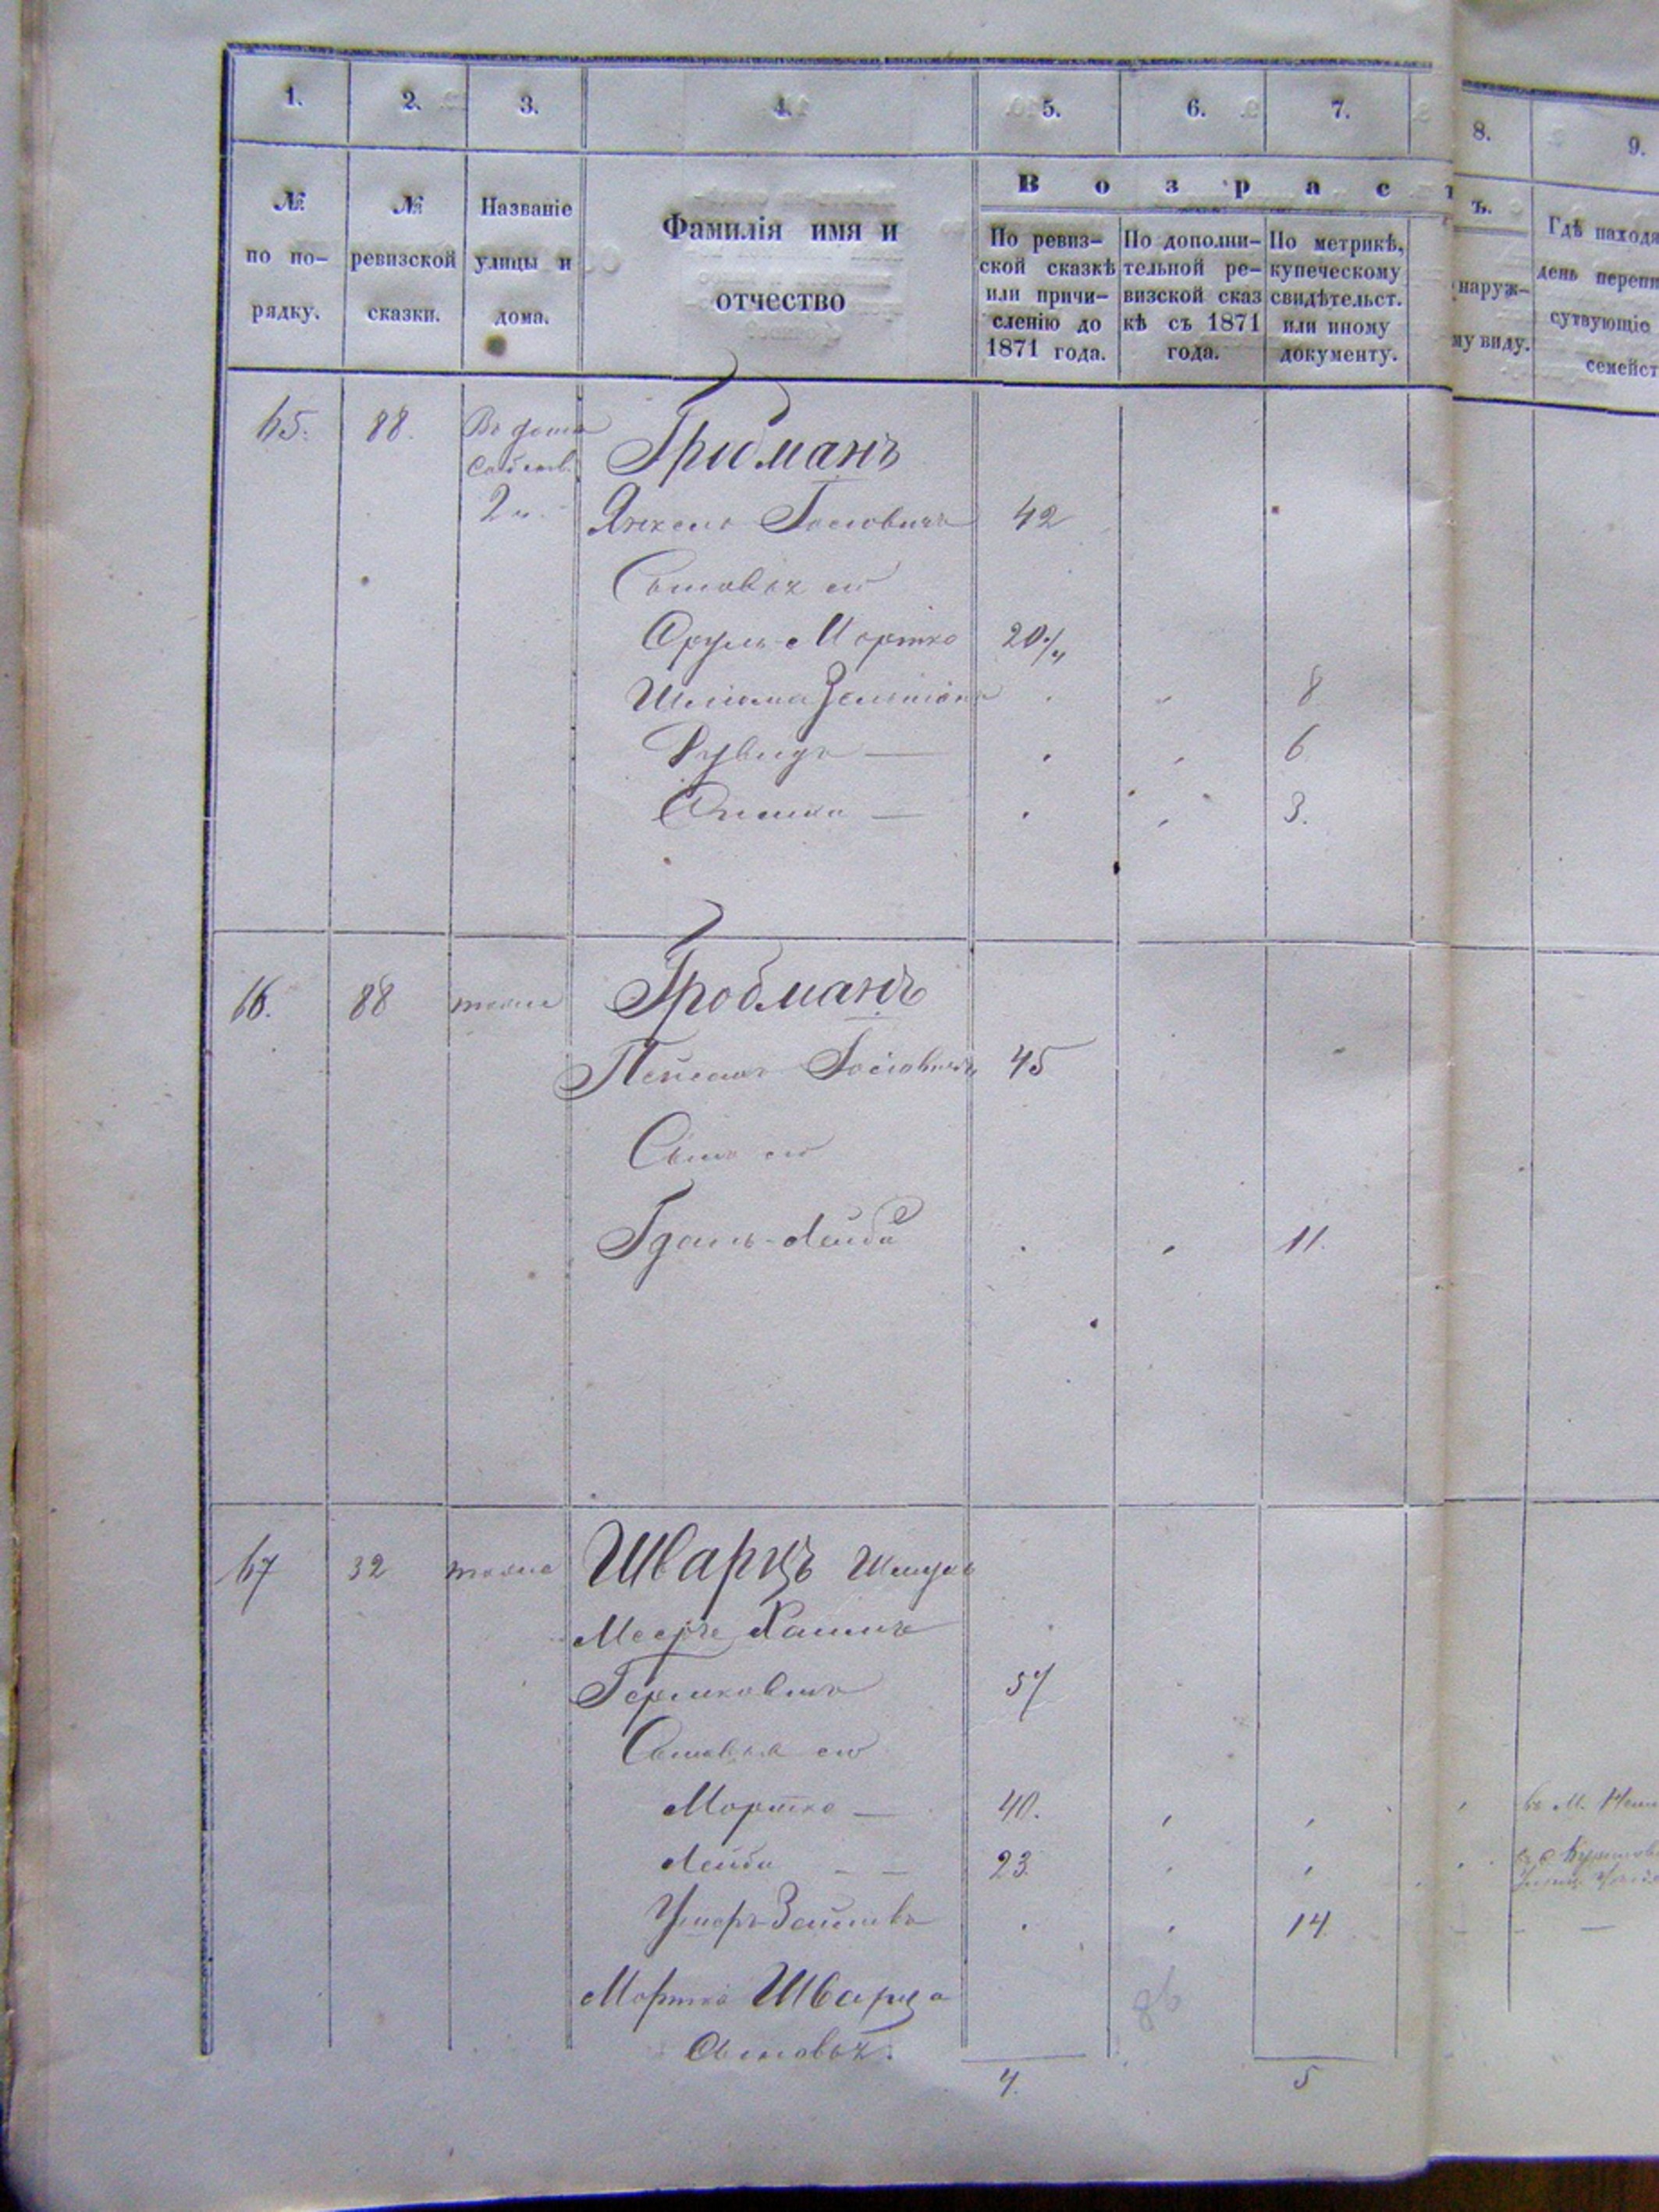 1. 2. 3. 4. 5. 6. 7. 8. 9.
В о з р а с т ъ.
№ по по-рядку.
№ ревизской сказки.
Названіе улицы и дома.
Фамилія имя и отчество
По ревиз-ской сказкѣ или причи-сленію до 1871 года.
По дополни-тельной ре-визской сказкѣ съ 1871 года.
По метрикѣ, купеческому свидѣтельст. или иному документу.
наруж-
му виду.
Гдѣ находя
день перепи
сутвующіе
семейст
65. 88. Въ домѣ
Собств.
Іосіовичъ 42
Сыновья его
Сруль-Мортко 20/4
Шлiома Зельманъ 8
Рувидъ — 6
— 3.
66. 88 тоже Гробманъ
Пейсахъ Іосіовичъ 45
Сынъ его
Гдаль-Лейба 11.
67 32 тоже Шварцъ Шмуль
Меерче Хаимъ
Гершковичъ 57
Сыновья его
Мортко — 40. въ М.
Лейба — — 23.
Ушеръ-Зейликъ 14
Мортка Шварца
Сыновья:
4. 5